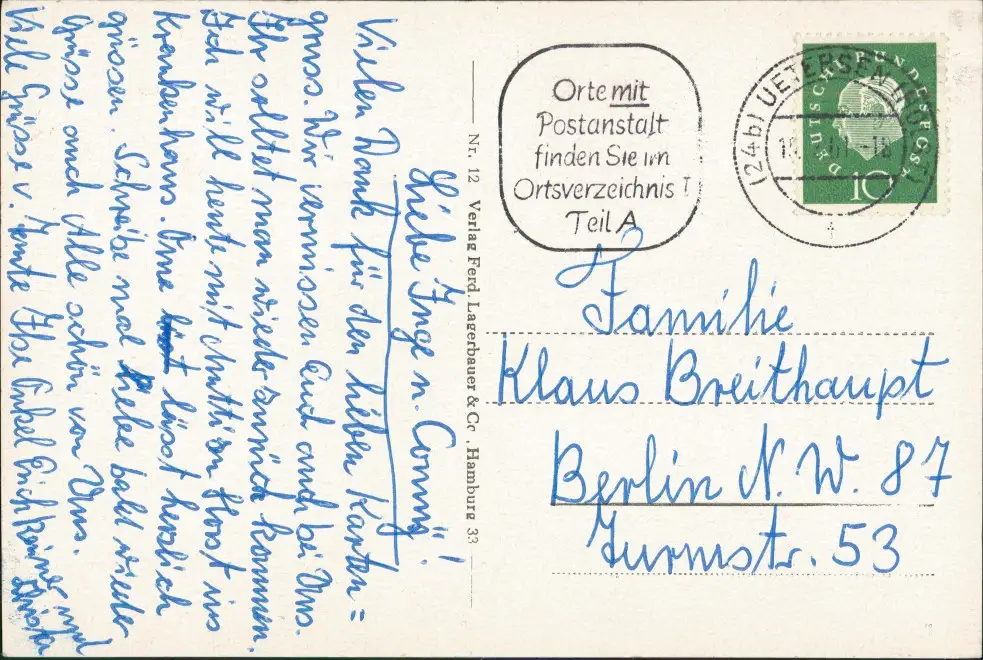 Liebe Inge u. Conny!
Vielen Dank für den lieben Karten=
gruss. Wir vermissen Euch auch bei Uns.
Ihr solltet man wieder zurück kommen.
Ich will heute mit Mutti zu Horst ins
Krenkenhaus. Oma lässt herzlich
grüssen. Schreibe mal liebe bald wieder
Grüsse auch Alle schön von Uns.
Viele Grüsse v. Tante Ilse Onkel Erich und
Nr. 12 Verlag Ferd. Lagerbauer & Co., Hamburg 33
Orte mit
Postanstalt
finden Sie im
Ortsverzeichnis
Teil A
(24b) UETERSEN (HOLST)
-18
DEUTSCHE BUNDESPOST
10
Familie
Klaus Breithaupt
Berlin N.W. 87
Turmstr. 53